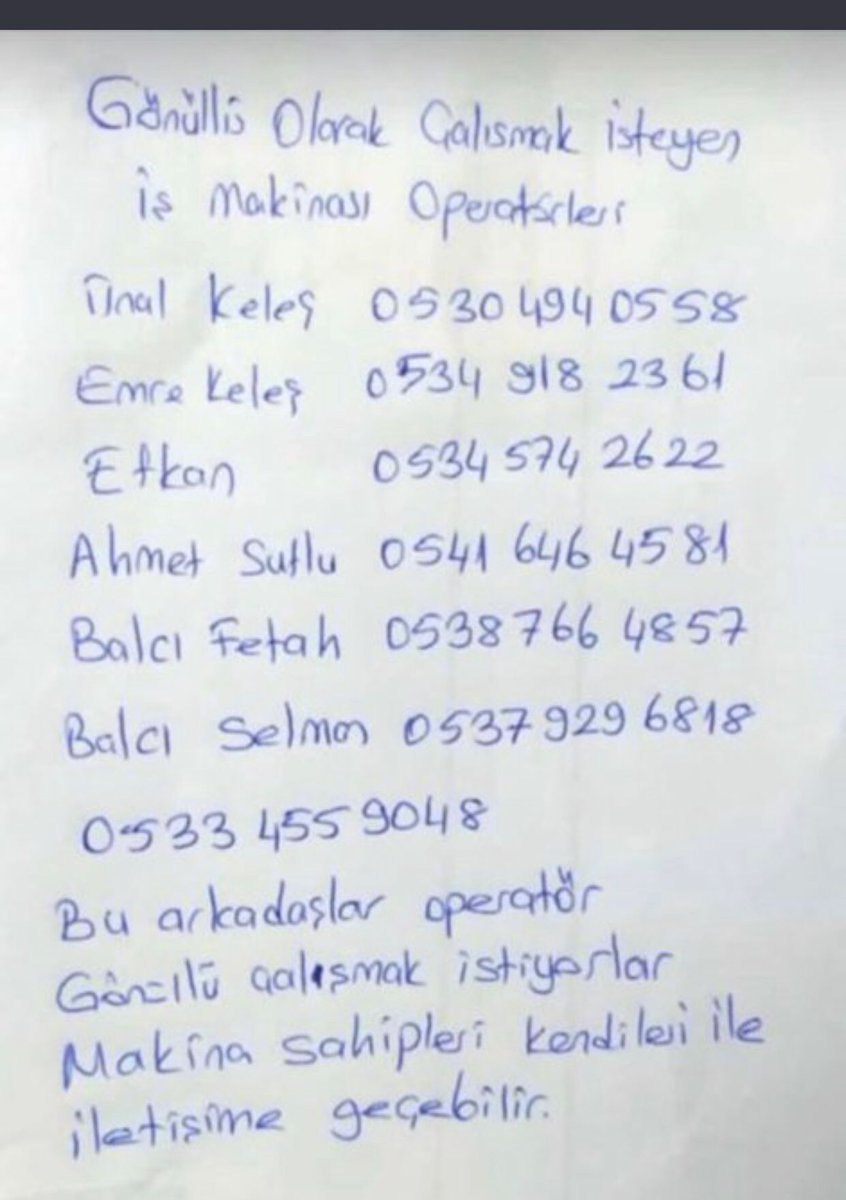 Gönüllü Olarak Çalışmak isteyen
iş Makinası Operatörleri
Ünal Keleş 0530 494 0558
Emre Keleş 0534 918 2361
Etkan 0534 574 2622
Ahmet Sutlu 0541 646 4581
Balcı Fetah 0538 766 4857
Balcı Selman 0537 929 6818
0533 455 9048
Bu arkadaşlar operatör
Gönüllü çalışmak istiyorlar
Makina sahipleri kendileri ile
iletişime geçebilir.